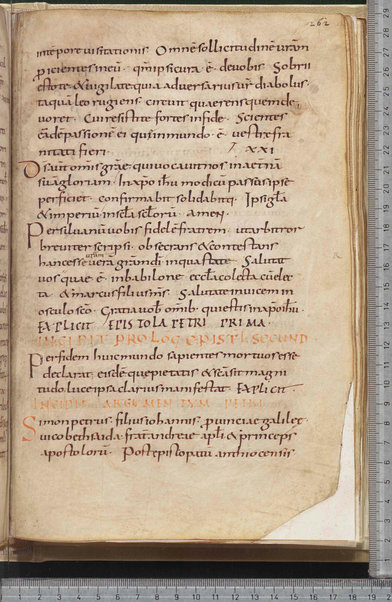 262
intēpore uisitationis Omnē sollicitudinē urām
proicientes ineū qm̄ ipsi cura ē deuobis Sobrii
estote & uigilate quia aduersarius ur̄ diabolus
tāquā leo rugiens circuit quaerens quem de
uoret Cui resistite fortes in fide Scientes
eādē passionē ei qui in mundo ē uestrae fra
nitati fieri XXI
Ds aut̄ om̄is grae qui uocauit nos in aet̄nā
suā gloriam In xp̄o ih̄u modicū passus ipse
perficiet confirmabit solidabitq; Ipsi gl̄a
& imperiū in scl̄a scl̄orū amen
Per siluanū uobis fidelē fratrem ut arbitror
breuiter scripsi obsecrans & contestans
hanc esse uerā grām dī in qua state Salutat
uos quae ē in babilone eccl̄a colecta
ta & marcus filius m̄s Salutate inuicem in
osculo sc̄o Gratia uob̄ omib; qui estis in xp̄o ih̄u
EXPLICIT EPISTOLA PETRI PRIMA
INCIPIT PROLOG EPISTL SECUND
Per fidem huic mundo sapientes mortuos esse
declarat eisdē quē pietatis & sc̄as sit magni
tudo luce ipsa clarius manifestat EXPLICIT
INCIPIT ARGUMENTUM PETRI
Simon petrus filius iohannis prouinciae galileę
uico bethsaida frat̄ andreae apl̄i & princeps
apostolorū Post episcopatū anthiocensis